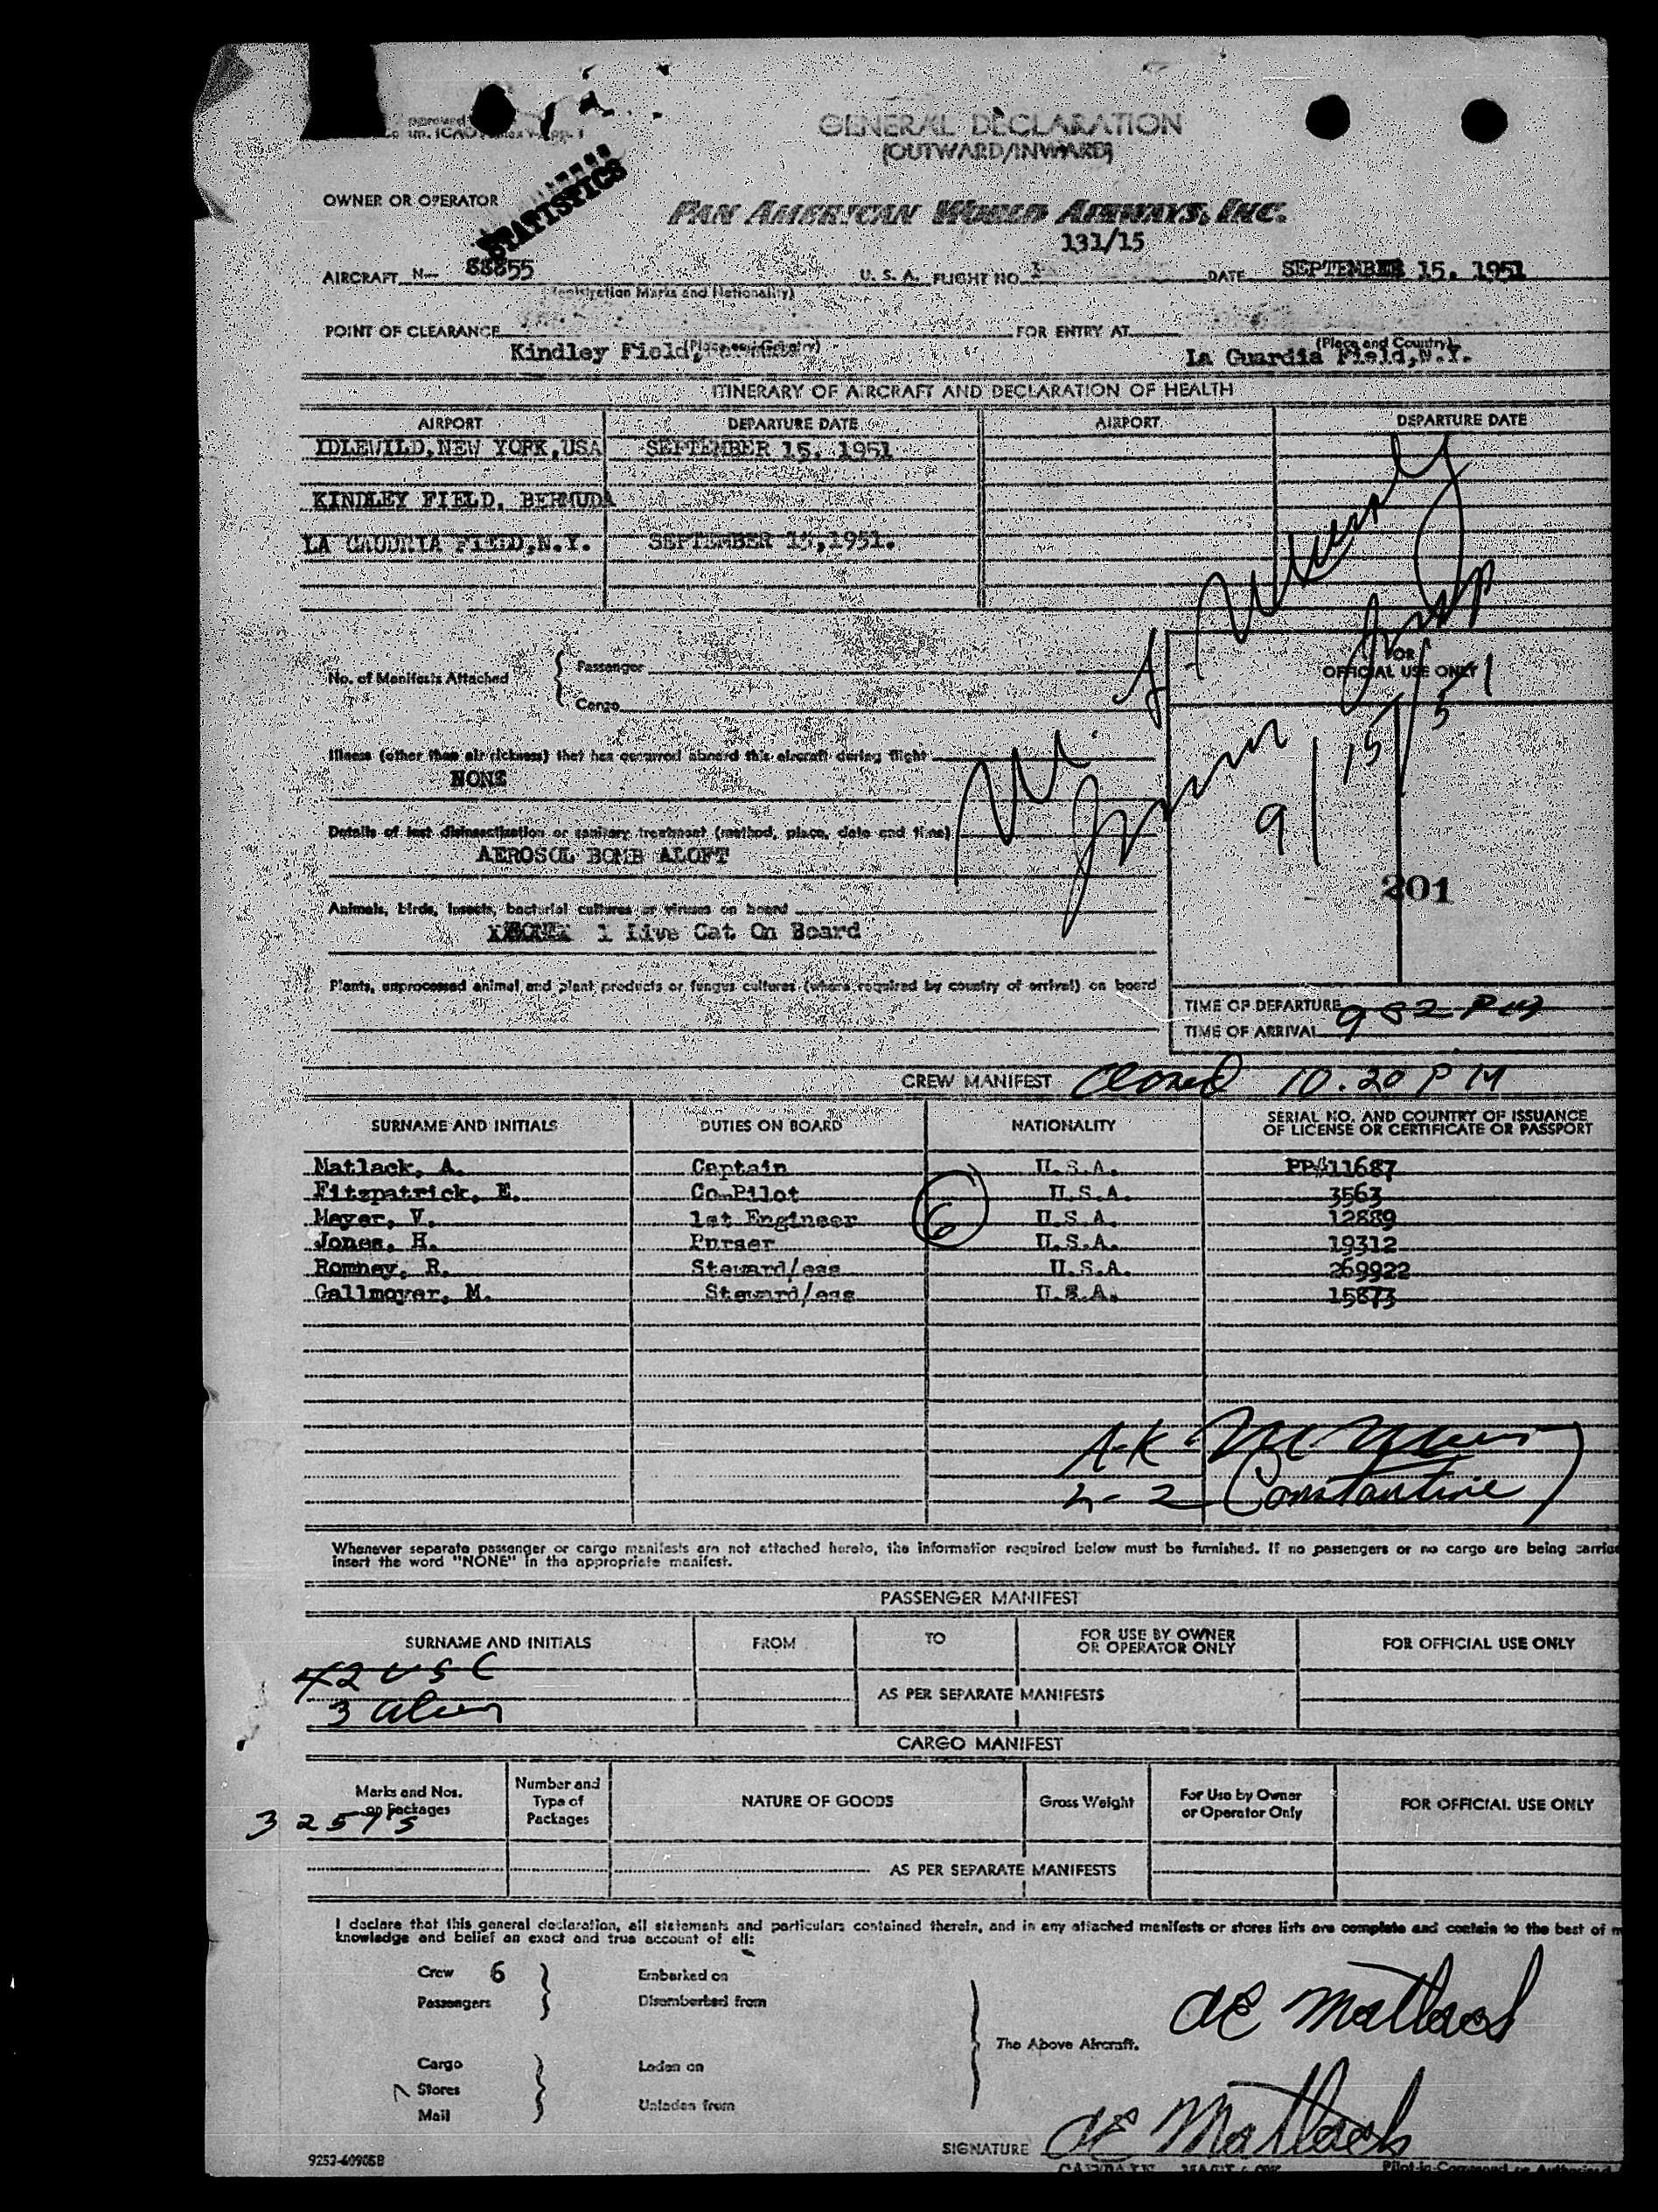 GENERAL DECLARATION
(OUTWARD/INWARD)
STATISTICS
OWNER OR OPERATOR
PAN AMERICAN WORLD AIRWAYS, INC.
131/15
AIRCRAFT N- 88855 U. S. A. FLIGHT NO. DATE SEPTEMBER 15. 1951
(Registration Marks and Nationality)
POINT OF CLEARANCE FOR ENTRY AT
(Place and Country) (Place and Country)
Kindley Field, La Guardia Field,N.Y.
ITINERARY OF AIRCRAFT AND DECLARATION OF HEALTH
AIRPORT DEPARTURE DATE AIRPORT DEPARTURE DATE
IDLEWILD,NEW YORK,USA SEPTEMBER 15. 1951
KINDLEY FIELD, BERMUDA
LA GAUDRIA FIELD,N.Y. SEPTEMBER 15,1951.
No. of Manifests Attached
Passenger
Cargo
FOR
OFFICIAL USE ONLY
9/15/51
201
Illness (other than air sickness) that has occurred aboard this aircraft during flight
NONE
Details of last disinsectization or sanitary treatment (method, place, date and time)
AEROSOL BOMB ALOFT
Animals, birds, insects, bacterial cultures or viruses on board
1 Live Cat On Board
Plants, unprocessed animal and plant products or fungus cultures (where required by country of arrival) on board
TIME OF DEPARTURE
TIME OF ARRIVAL 952 PM
CREW MANIFEST Closed 10.20 PM
SURNAME AND INITIALS DUTIES ON BOARD NATIONALITY SERIAL NO. AND COUNTRY OF ISSUANCE
OF LICENSE OR CERTIFICATE OR PASSPORT
Matlack, A. Captain U.S.A. PP#11687
Fitzpatrick, E. Co-Pilot U.S.A. 3563
Meyer, V. 1st Engineer 6 U.S.A. 12889
Jones, H. Purser U.S.A. 19312
Romney, R. Steward/ess U.S.A. 269922
Gallmoyer, M. Steward/ess U.S.A. 15873
Constantine
Whenever separate passenger or cargo manifests are not attached hereto, the information required below must be furnished. If no passengers or no cargo are being carried
insert the word "NONE" in the appropriate manifest.
PASSENGER MANIFEST
SURNAME AND INITIALS FROM TO FOR USE BY OWNER
OR OPERATOR ONLY FOR OFFICIAL USE ONLY
42 USC
3 alien
AS PER SEPARATE MANIFESTS
CARGO MANIFEST
Marks and Nos.
on Packages Number and
Type of
Packages NATURE OF GOODS Gross Weight For Use by Owner
or Operator Only FOR OFFICIAL USE ONLY
3 257's
AS PER SEPARATE MANIFESTS
I declare that this general declaration, all statements and particulars contained therein, and in any attached manifests or stores lists are complete and contain to the best of
knowledge and belief an exact and true account of all:
Crew 6 Embarked on
Passengers Disembarked from
The Above Aircraft.
AE Matlack
Cargo Laden on
Stores
Mail Unladen from
SIGNATURE AE Matlack
CAPTAIN Pilot-in-Command or Authorized
9253-60905B